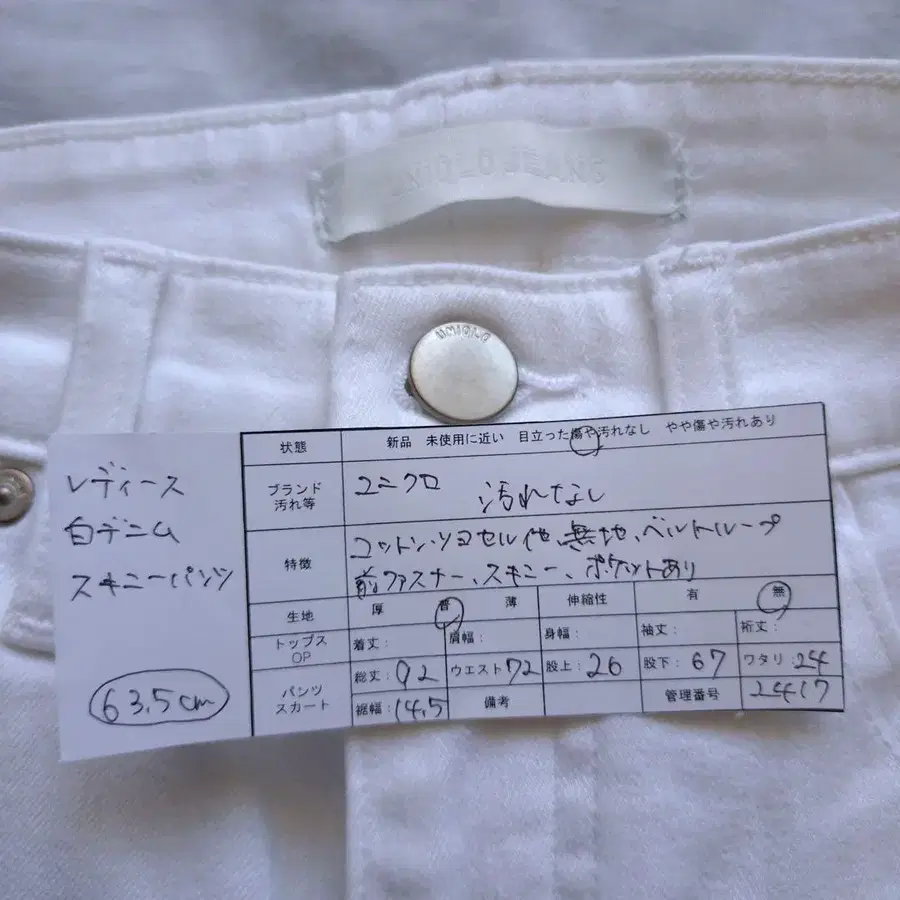 UNIQLO JEANS
UNIQLO
レディース
白デニム
スキニーパンツ
63.5cm
状態 新品 未使用に近い 目立った傷や汚れなし やや傷や汚れあり
ブランド 汚れ等 ユニクロ 汚れなし
特徴 コットン・リヨセル他、無地、ベルトループ
前ファスナー、スキニー、ポケットあり
生地 厚 普 薄 伸縮性 有 無
トップス OP 着丈: 肩幅: 身幅: 袖丈: 裄丈:
パンツ スカート 総丈:92 ウエスト72 股上:26 股下:67 ワタリ:24
裾幅:14.5 備考 管理番号 2417